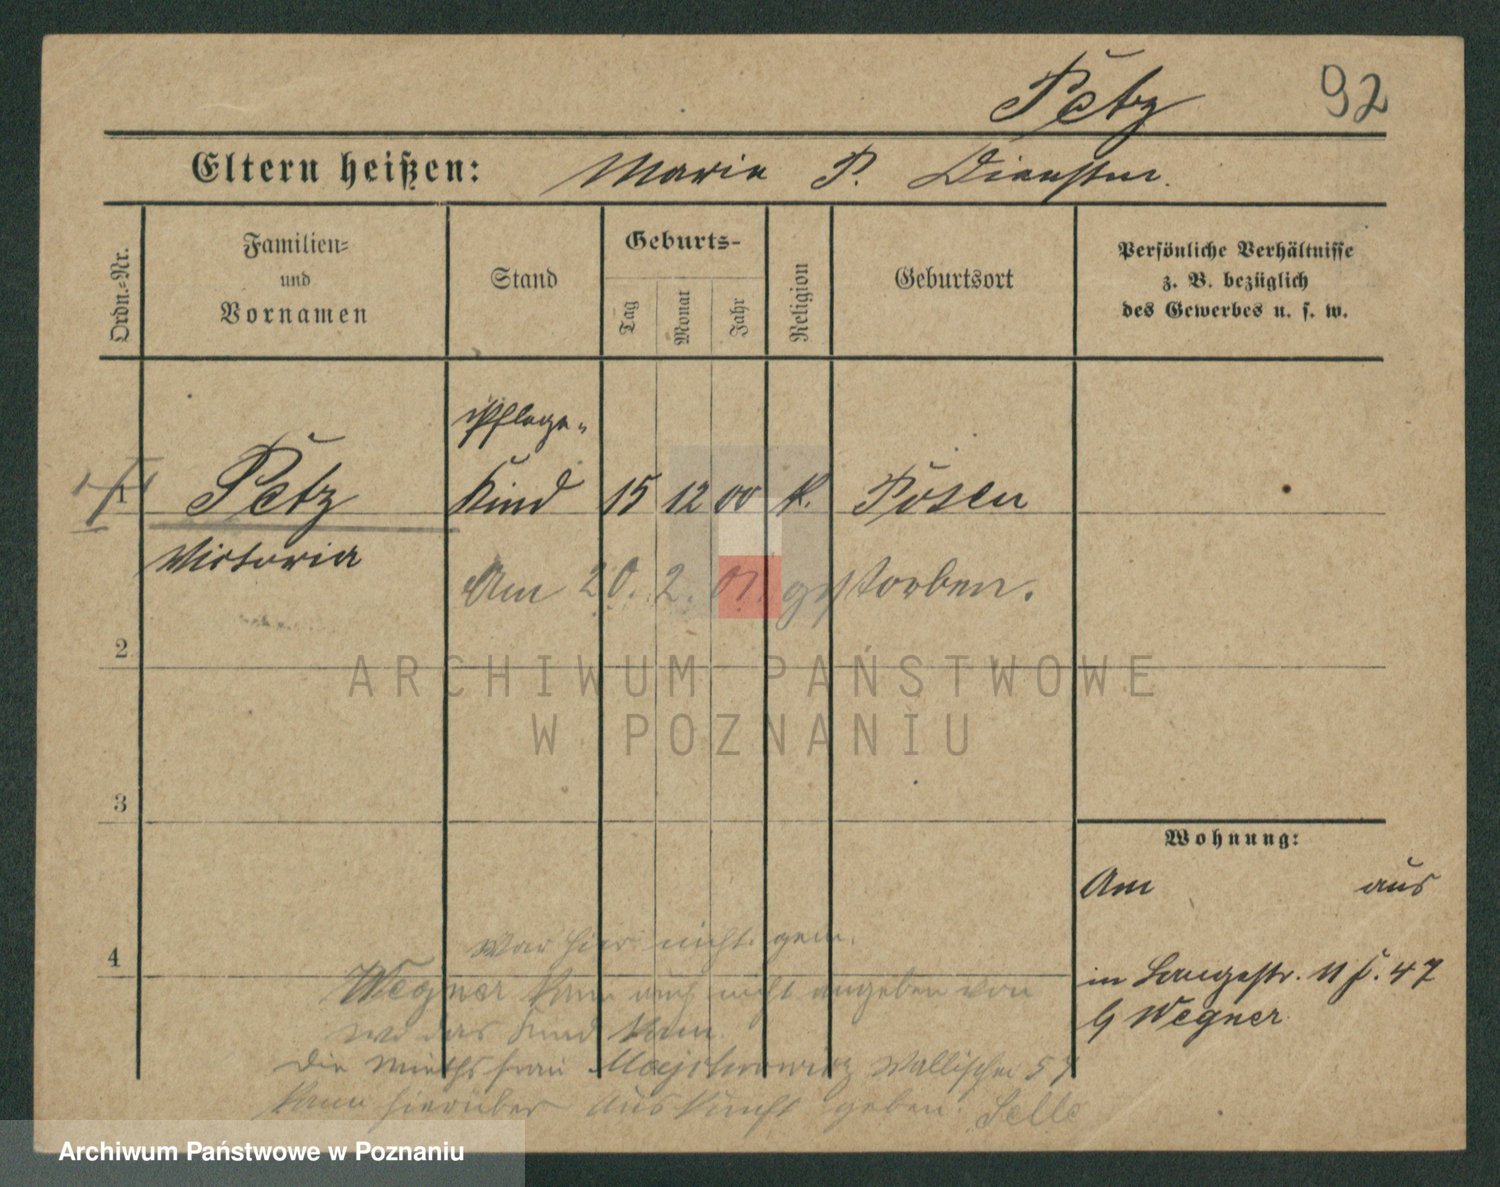 Petz 92
Eltern heißen: Marie P. Dienstm.
Ordn.-Nr.
Familien-
und
Vornamen
Stand
Geburts-
Tag
Monat
Jahr
Religion
Geburtsort
Persönliche Verhältnisse
z. B. bezüglich
des Gewerbes u. s. w.
Pflege-
1 Petz Kind 15 12 00 k. Posen
Victoria
Am 20. 2. 01. gestorben.
2
ARCHIWUM PAŃSTWOWE
W POZNANIU
3
Wohnung:
Am aus
4
war hier nicht gem.
in Langestr. 47
b Wegner
Wegner kann auch nicht angeben von
wo das Kind kam.
Die Miethsfrau Wallischei 57
kann hierüber Auskunft geben. Selle
Archiwum Państwowe w Poznaniu